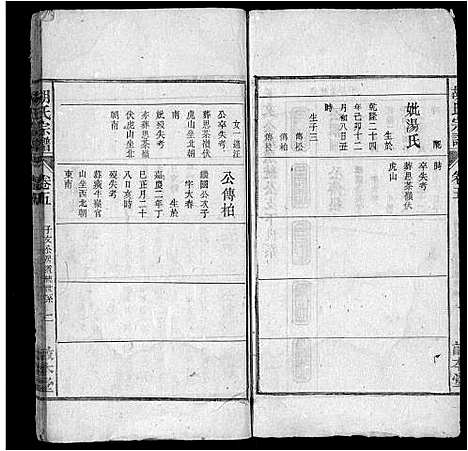 胡氏宗譜
卷五
時
配
卒失考
葬思茶嶺伏
虎山
妣湯氏
生於
乾隆二十四
年己卯十二
月初八日丑
生子三
傳松
傳柏
女一適汪
公卒失考
葬思茶嶺
虎山坐北朝
南
妣歿失考
亦葬思茶嶺
伏虎山坐北
朝南
公傳柏
國公次子
字大春
生於
嘉慶二年丁
巳正月二十
八日亥時
歿失考
葬癀牛嶺官
山坐西北朝
東南
胡氏宗譜
卷五
二
敦本堂